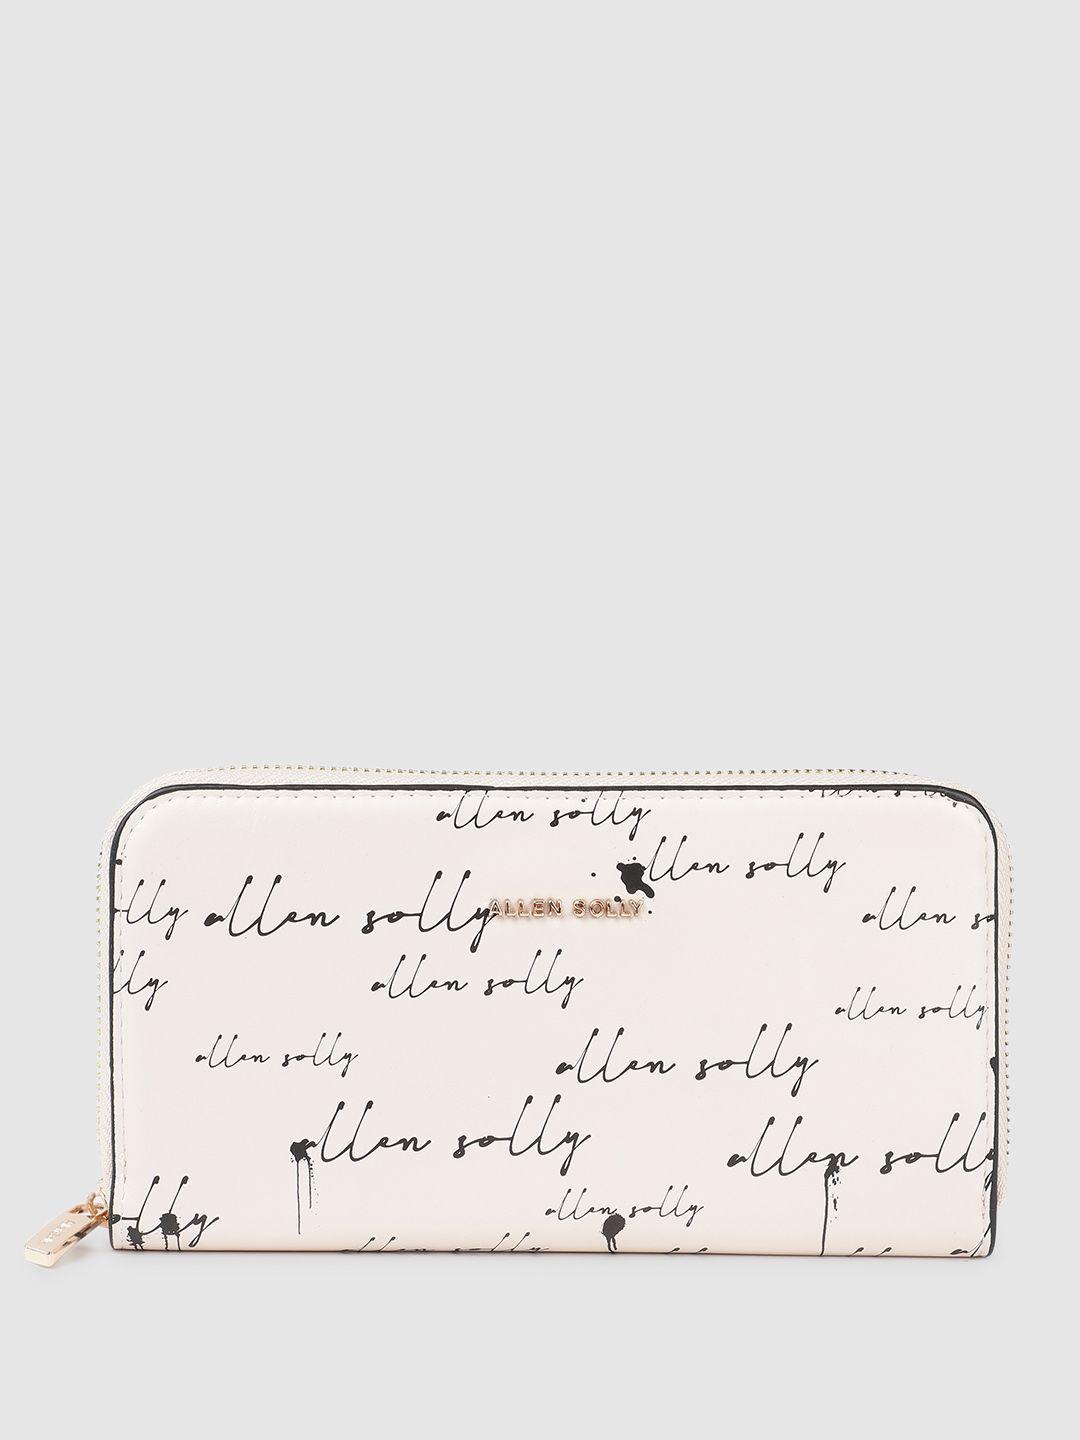 allen solly
allen solly
allen solly
ALLEN SOLLY
lly
allen so
allen solly
lly
allen solly
allen solly
allen solly
allen solly
allen solly
allen solly
solly